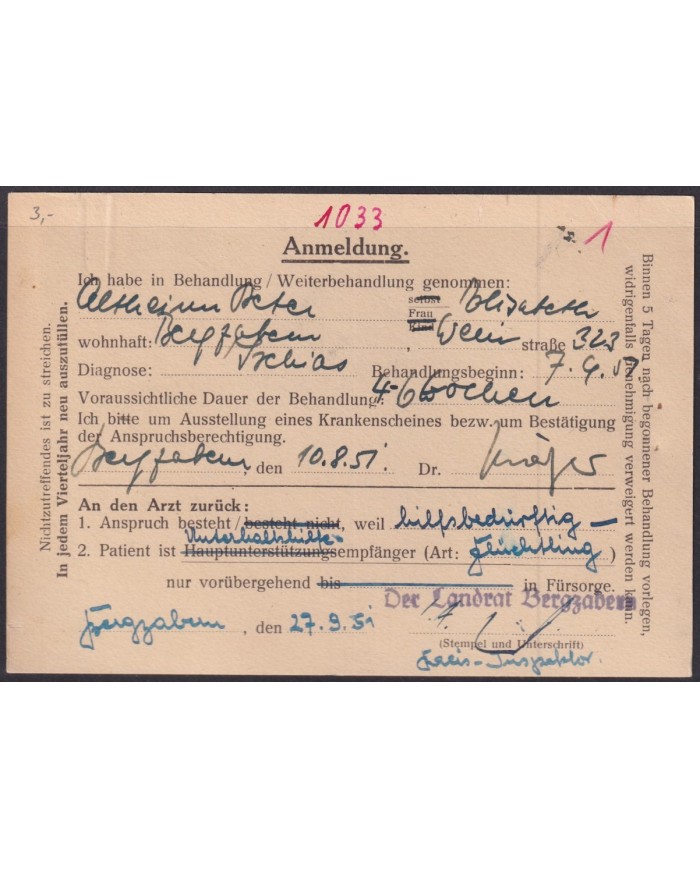 3,-
1033
1
Anmeldung.
Ich habe in Behandlung/Weiterbehandlung genommen:
Peter selbst Elisabeth
Frau
Kind
wohnhaft: Bergzabern, Wein straße 323
Diagnose: Ischias Behandlungsbeginn: 7.9.51
Voraussichtliche Dauer der Behandlung: 4-6 Wochen
Ich bitte um Ausstellung eines Krankenscheines bezw. um Bestätigung
der Anspruchsberechtigung.
Bergzabern, den 10.8.51. Dr.
An den Arzt zurück:
1. Anspruch besteht/besteht nicht, weil hilfsbedürftig –
Unterhaltshilfe-
2. Patient ist Hauptunterstützungsempfänger (Art: Flüchtling)
nur vorübergehend bis in Fürsorge.
Der Landrat Bergzabern
Bergzabern, den 27.9.51
(Stempel und Unterschrift)
Kreis-Inspektor.
Nichtzutreffendes ist zu streichen.
In jedem Vierteljahr neu auszufüllen.
Binnen 5 Tagen nach begonnener Behandlung vorlegen,
widrigenfalls Genehmigung verweigert werden kann.